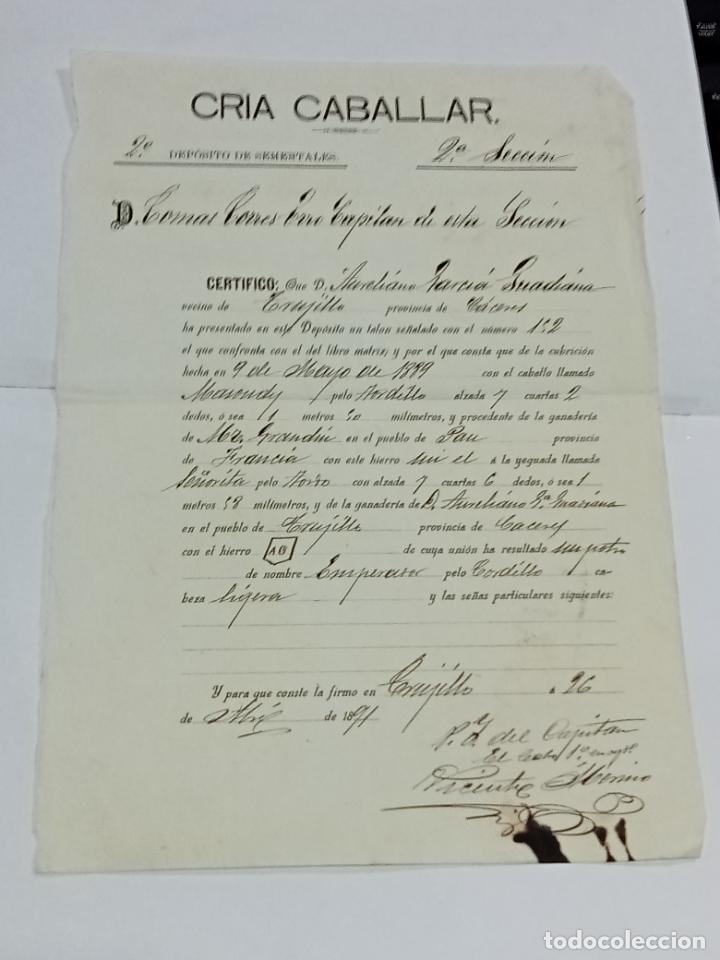 CRIA CABALLAR.
2º DEPÓSITO DE SEMENTALES. 2ª Sección
D. Tomas Torres Erro Capitan de esta Sección
CERTIFICO: Que D. Aureliano Garcia Guadiana
vecino de Trujillo provincia de Cáceres
ha presentado en este Depósito un talon señalado con el número 152
el que confronta con el del libro matriz; y por el que consta que de la cubrición
hecha en 9 de Mayo de 1889 con el caballo llamado
pelo tordillo alzada 7 cuartas 2
dedos, ó sea 1 metros 50 milímetros, y procedente de la ganadería
de Mr. en el pueblo de Pau provincia
de Francia con este hierro sin el a la yeguada llamada
Señorita pelo con alzada 7 cuartas 6 dedos, ó sea 1
metros 58 milímetros, y de la ganadería de D. Aureliano
en el pueblo de Trujillo provincia de Caceres
con el hierro de cuya unión ha resultado un potro
de nombre Emperador pelo Tordillo ca-
beza ligera y las señas particulares siguientes:
Y para que conste la firmo en Trujillo á 26
de de 1891
del Capitan
El Cabo 1º
Vicente
todocoleccion
todocoleccion.net